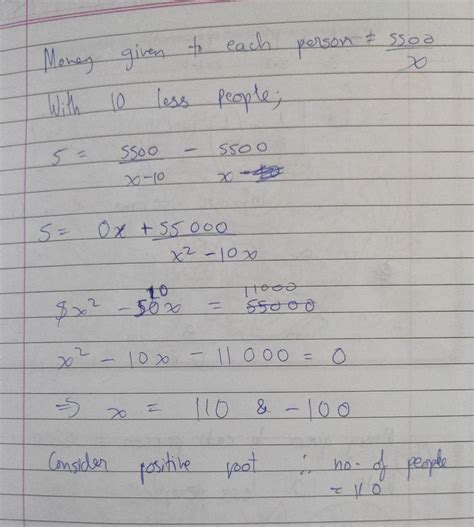 Money given to each person = 5500/x
With 10 less people;
5 = 5500/(x-10) - 5500/x
5 = (0x + 55000)/(x² - 10x)
x² - 10x = 11000
x² - 10x - 11000 = 0
⇒ x = 110 & -100
Consider positive root ∴ no. of people
= 110